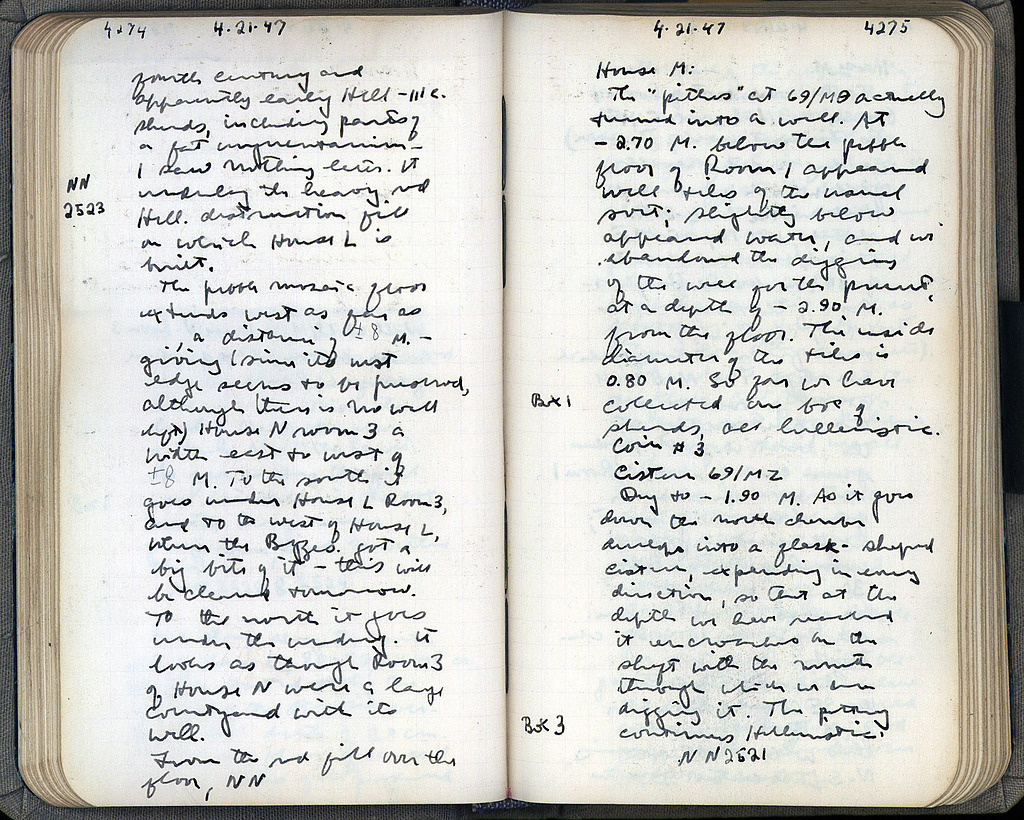 4274 4.21.47
fourth century and
apparently early Hell - III c.
sherds, including parts of
a fat unguentarium -
I saw nothing later. It
NN
2523
underlay the heavy red
Hell. destruction fill
on which House L is
built.
The pebble mosaic floor
extends west as far as
a distance of ±8 M. -
giving (since its west
edge seems to be preserved,
although there is no wall
left) House N room 3 a
width east to west of
±8 M. To the south it
goes under House L Room 3,
and to the west of House L,
where the Byzes. got a
big bite of it - this will
be cleared tomorrow.
To the north it goes
under the undug. it
looks as though Room 3
of House N were a large
courtyard with its
well.
From the red fill over the
floor, NN
4.21.47 4275
House M:
The "pithos" at 69/MΘ actually
turned into a well. At
- 2.70 M. below the pebble
floor of Room 1 appeared
well tiles of the usual
sort; slightly below
appeared water, and we
abandoned the digging
of the well for the present,
at a depth of - 2.90 M.
from the floor. The inside
diameter of the tiles is
0.80 M. So far we have
Box 1
collected one box of
sherds, all hellenistic.
Coin # 3
Cistern 69/MZ
Dug to - 1.90 M. As it goes
down the north chamber
develops into a flask-shaped
cistern, expanding in every
direction, so that at the
depth we have reached
it encroaches on the
shaft with the mouth
through which we are
digging it. The pottery
Box 3
continues Hellenistic.
NN2521